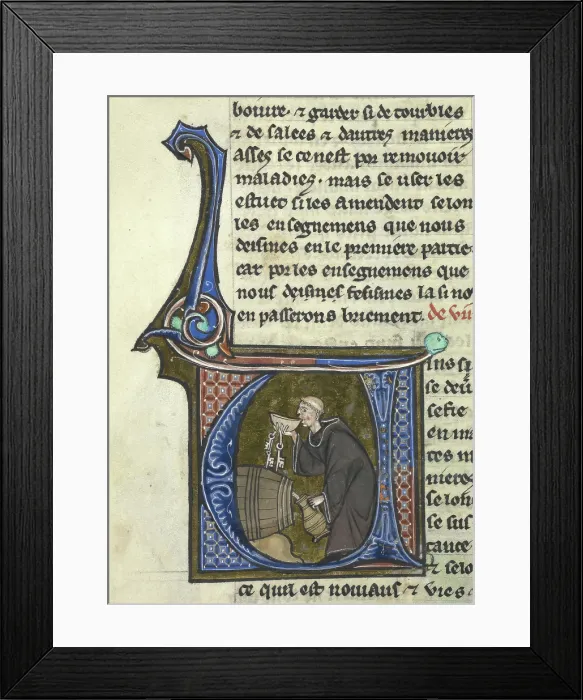 boiure ⁊ garder si de tourbles
⁊ de salees ⁊ dautres manieres
asses se ce nest por remouoir
maladies · mais se user les
estuet si les amendent selon
les ensegnemens que nous
deisimes en le premiere partie·
car por les ensegnemens que
nous deisimes fesismes la si no
en passerons briement. de vii
ins si
se deu
selte
en m
ces m
miere
se lon
se sus
tance
⁊ selo
ce quil est nouiaus ⁊ vies ·